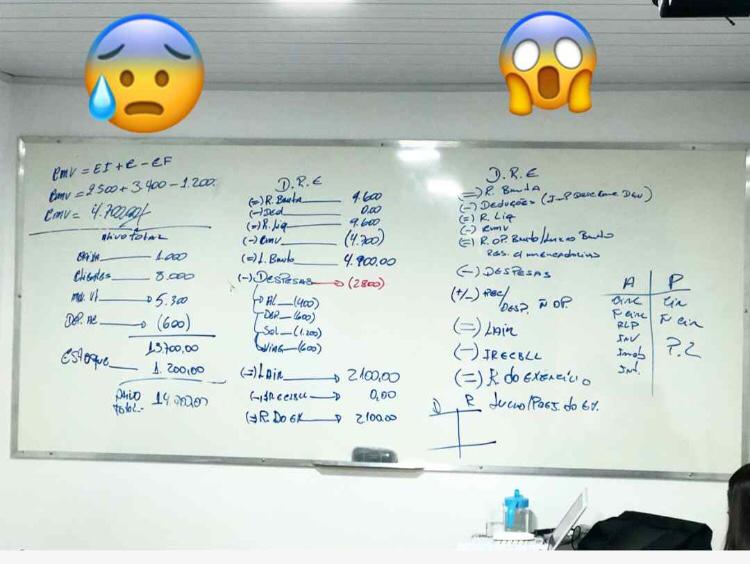 CMV = EI + C - EF
CMV = 2.500 + 3.400 - 1.200
CMV = 4.700,00
Ativo total
Caixa 1.000
Clientes 8.000
5.300
DEP. AC (600)
13.700,00
Estoque 1.200,00
total 14.900,00
D.R.E
(=) R. Bruta 9.600
(-) Ded 0,00
(=) R. Liq 9.600
(-) CMV (4.700)
(=) L. Bruto 4.900,00
(-) DESPESAS (2800)
AL (400)
DEP (600)
Sal (1.200)
(600)
(=) LAIR 2100,00
(-) IRECSLL 0,00
(=) R. DO EX 2100,00
D.R.E
(=) R. Bruta
(-) Deduções
(=) R. Liq
(-) CMV
(=) R. OP. Bruto/Lucro Bruto
Res. c/ mercadorias
(-) DESPESAS
(+/-) REC/
DESP. Ñ OP.
(=) LAIR
(-) IRECSLL
(=) R do EXERCÍCIO
D R Lucro/Prej. do Ex.
A P
Circ Cir
Ñ Circ Ñ Cir
RLP
INV P.L
Imob
Int.